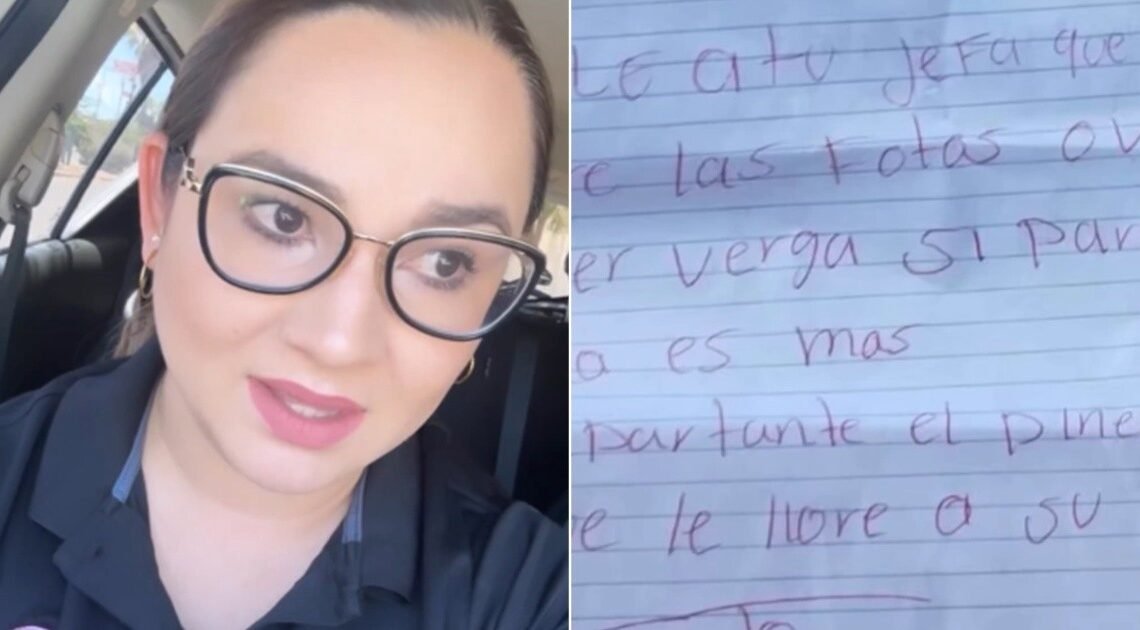 LE a tu jefa que
e las Fotos ov
er verga si par
a es mas
partante el Dine
e le llore a su